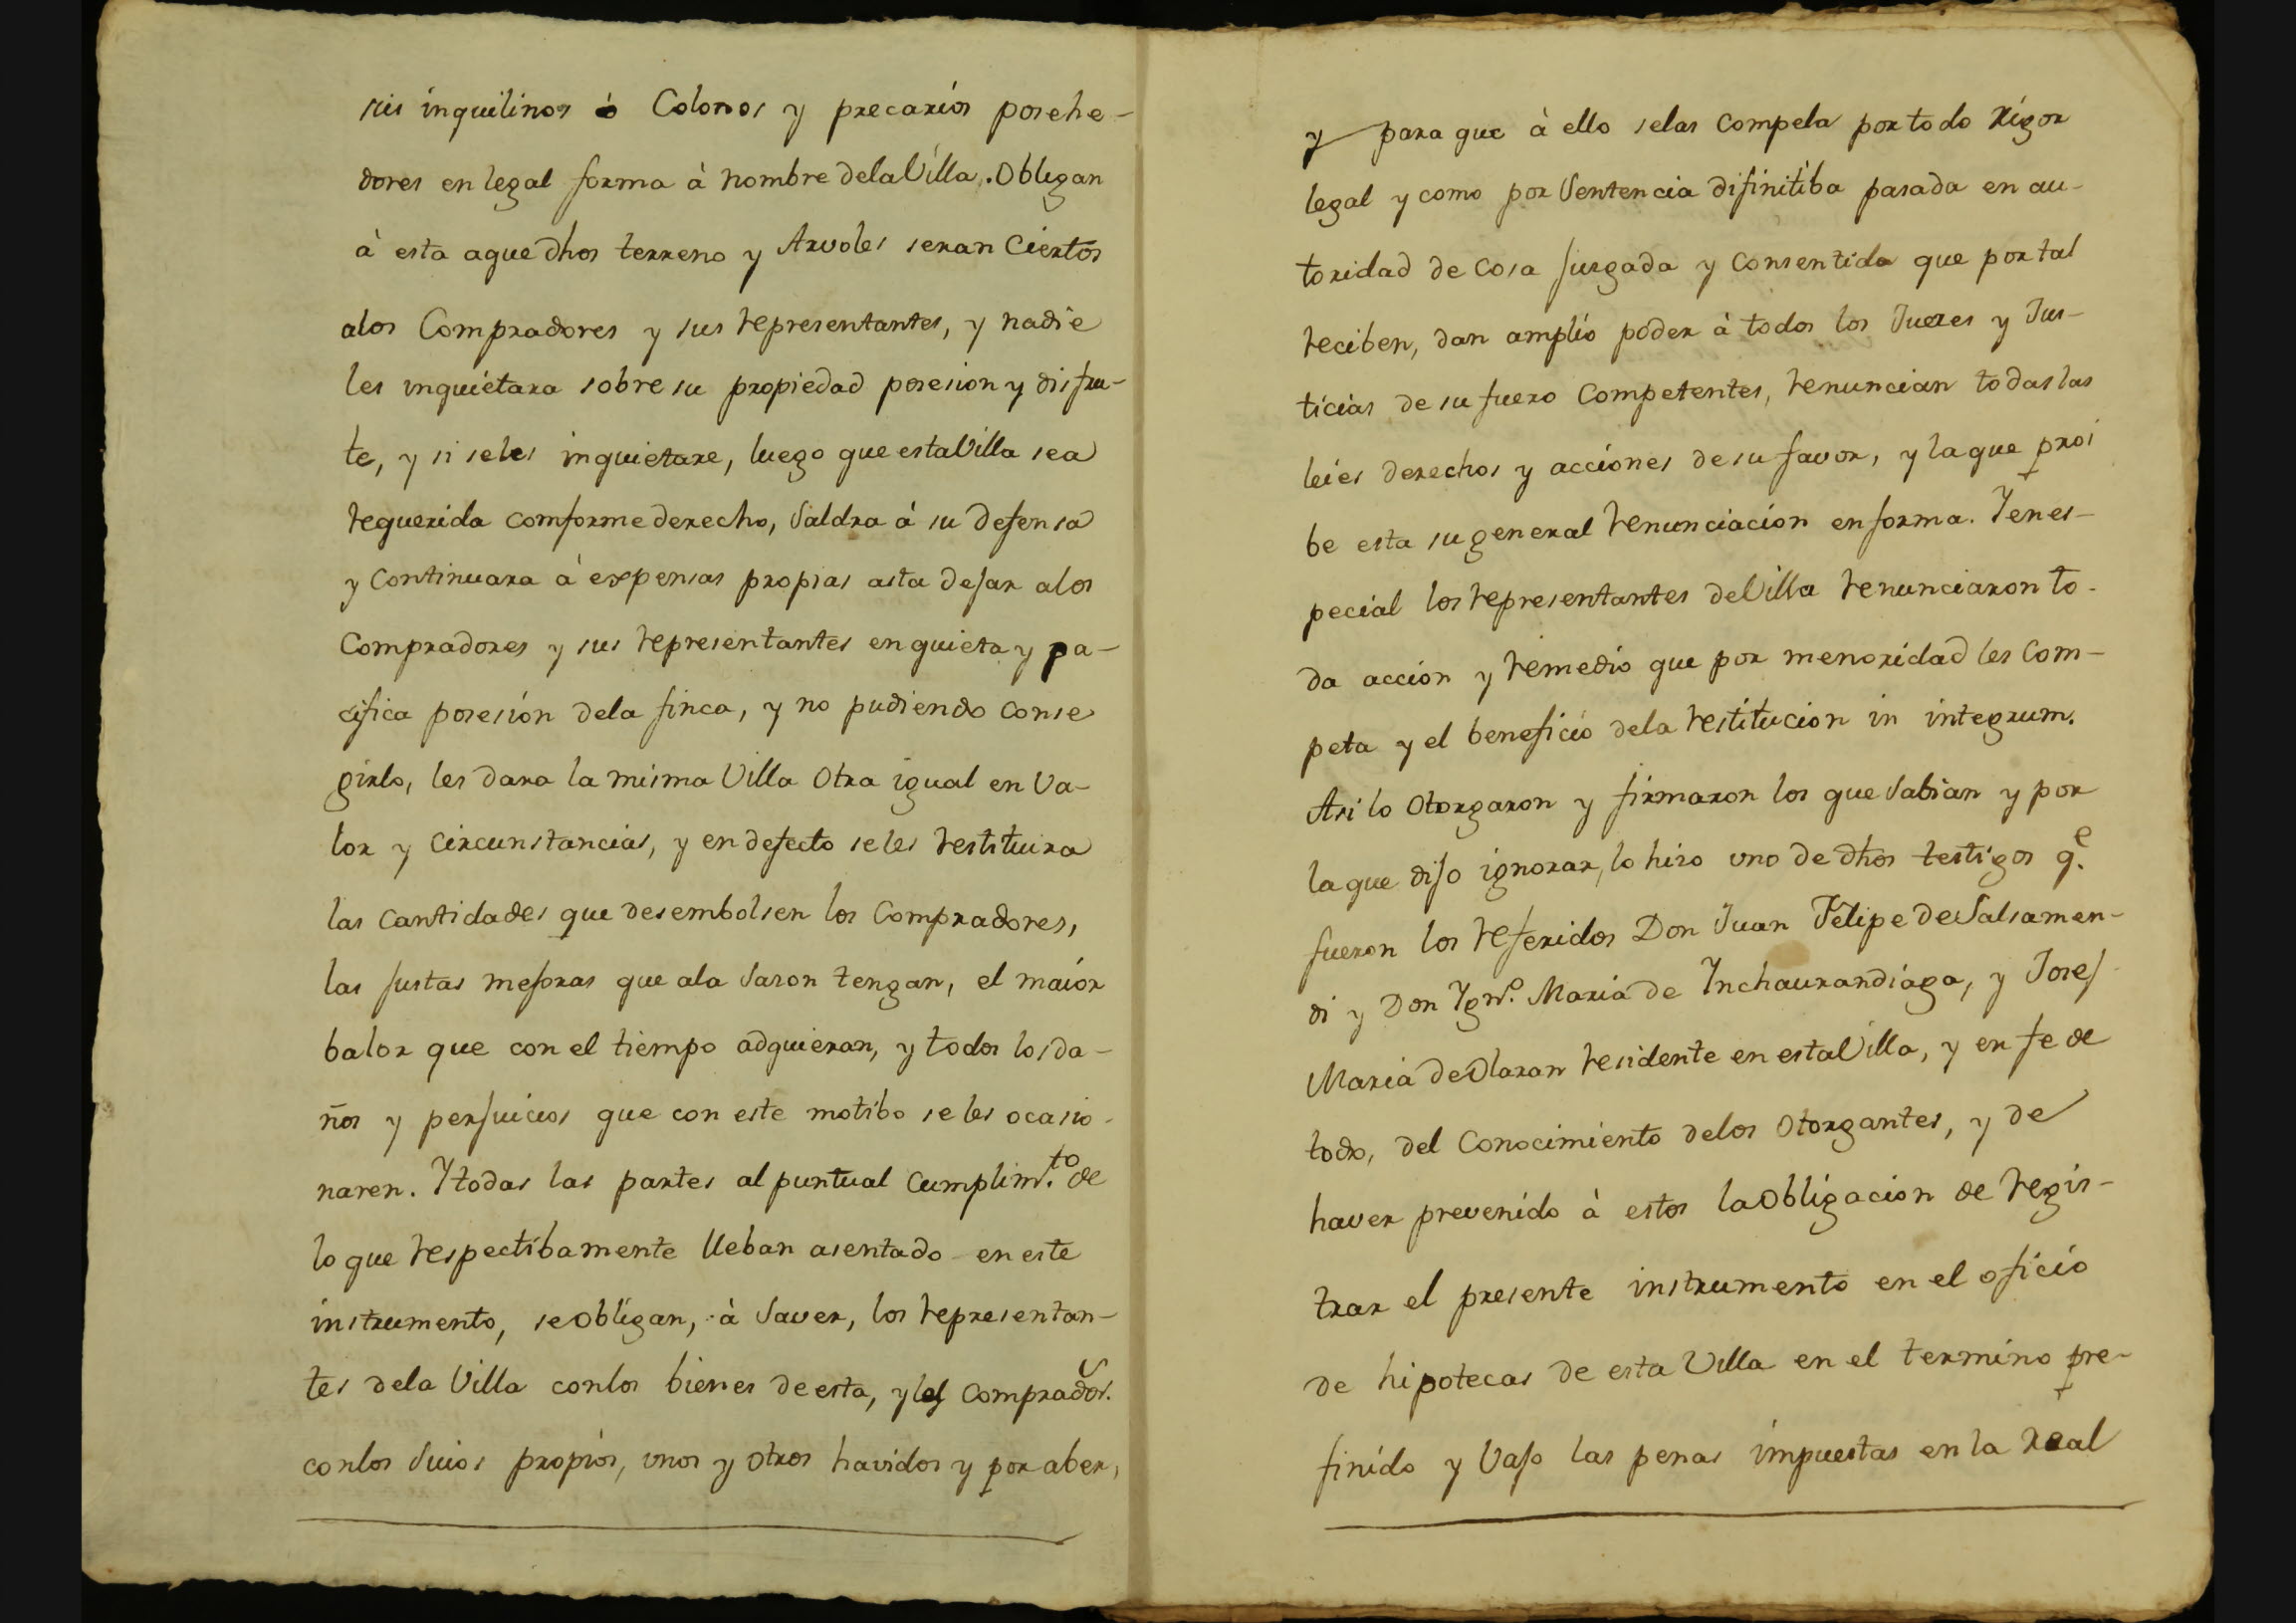 sus inquilinos ó Colonos y precarios posehe-
dores en legal forma à nombre dela Villa. Obligan
à esta aque dhos terreno y Arvoles seran Ciertos
alos Compradores y sus representantes, y nadie
les inquietara sobre su propiedad posesion y disfru-
te, y si seles inquietare, luego que esta Villa sea
requerida comforme derecho, Saldra à su defensa
y Continuara à expensas propias asta dejar alos
Compradores y sus representantes en quieta y pa-
cifica posesion dela finca, y no pudiendo conse
girlo, les dara la misma Villa Otra igual en Va-
lor y Circunstancias, y en defecto seles restituira
las Cantidades que desembolsen los Compradores,
las justas mejoras que ala Sazon tengan, el maior
balor que con el tiempo adquieran, y todos los da-
ños y perjuicios que con este motibo se les ocasio-
naren. Y todas las partes al puntual Cumplim.to de
lo que respectibamente lleban asentado en este
instrumento, se Obligan, à Saver, los representan-
tes dela Villa conlos bienes de esta, y los Comprador.s
conlos Suios propios, unos y otros havidos y por aber,
y para que à ello selas Compela por todo Rigor
legal y como por Sentencia difinitiba pasada en au-
toridad de Cosa Juzgada y Consentida que por tal
reciben, dan amplio poder à todos los Juezes y Jus-
ticias de su fuero Competentes, renuncian todas las
leies derechos y acciones de su favor, y la que proi
be esta su general renunciacion en forma. Y en es-
pecial los representantes de Villa renunciaron to-
da acción y remedio que por menoridad les Com-
peta y el beneficio dela restitucion in integrum.
Asi lo Otorgaron y firmaron los que Sabian y por
la que dijo ignorar, lo hizo uno de dhos testigos q.e
fueron los referidos Don Juan Felipe de Salsamen-
di y Don Ygn.o Maria de Ynchaurandiaga, y Josef
Maria de Olaran residente en esta Villa, y en fe de
todo, del Conocimiento delos Otorgantes, y de
haver prevenido à estos la Obligacion de regis-
trar el presente instrumento en el oficio
de hipotecas de esta Villa en el termino pre-
finido y Vajo las penas impuestas en la Real